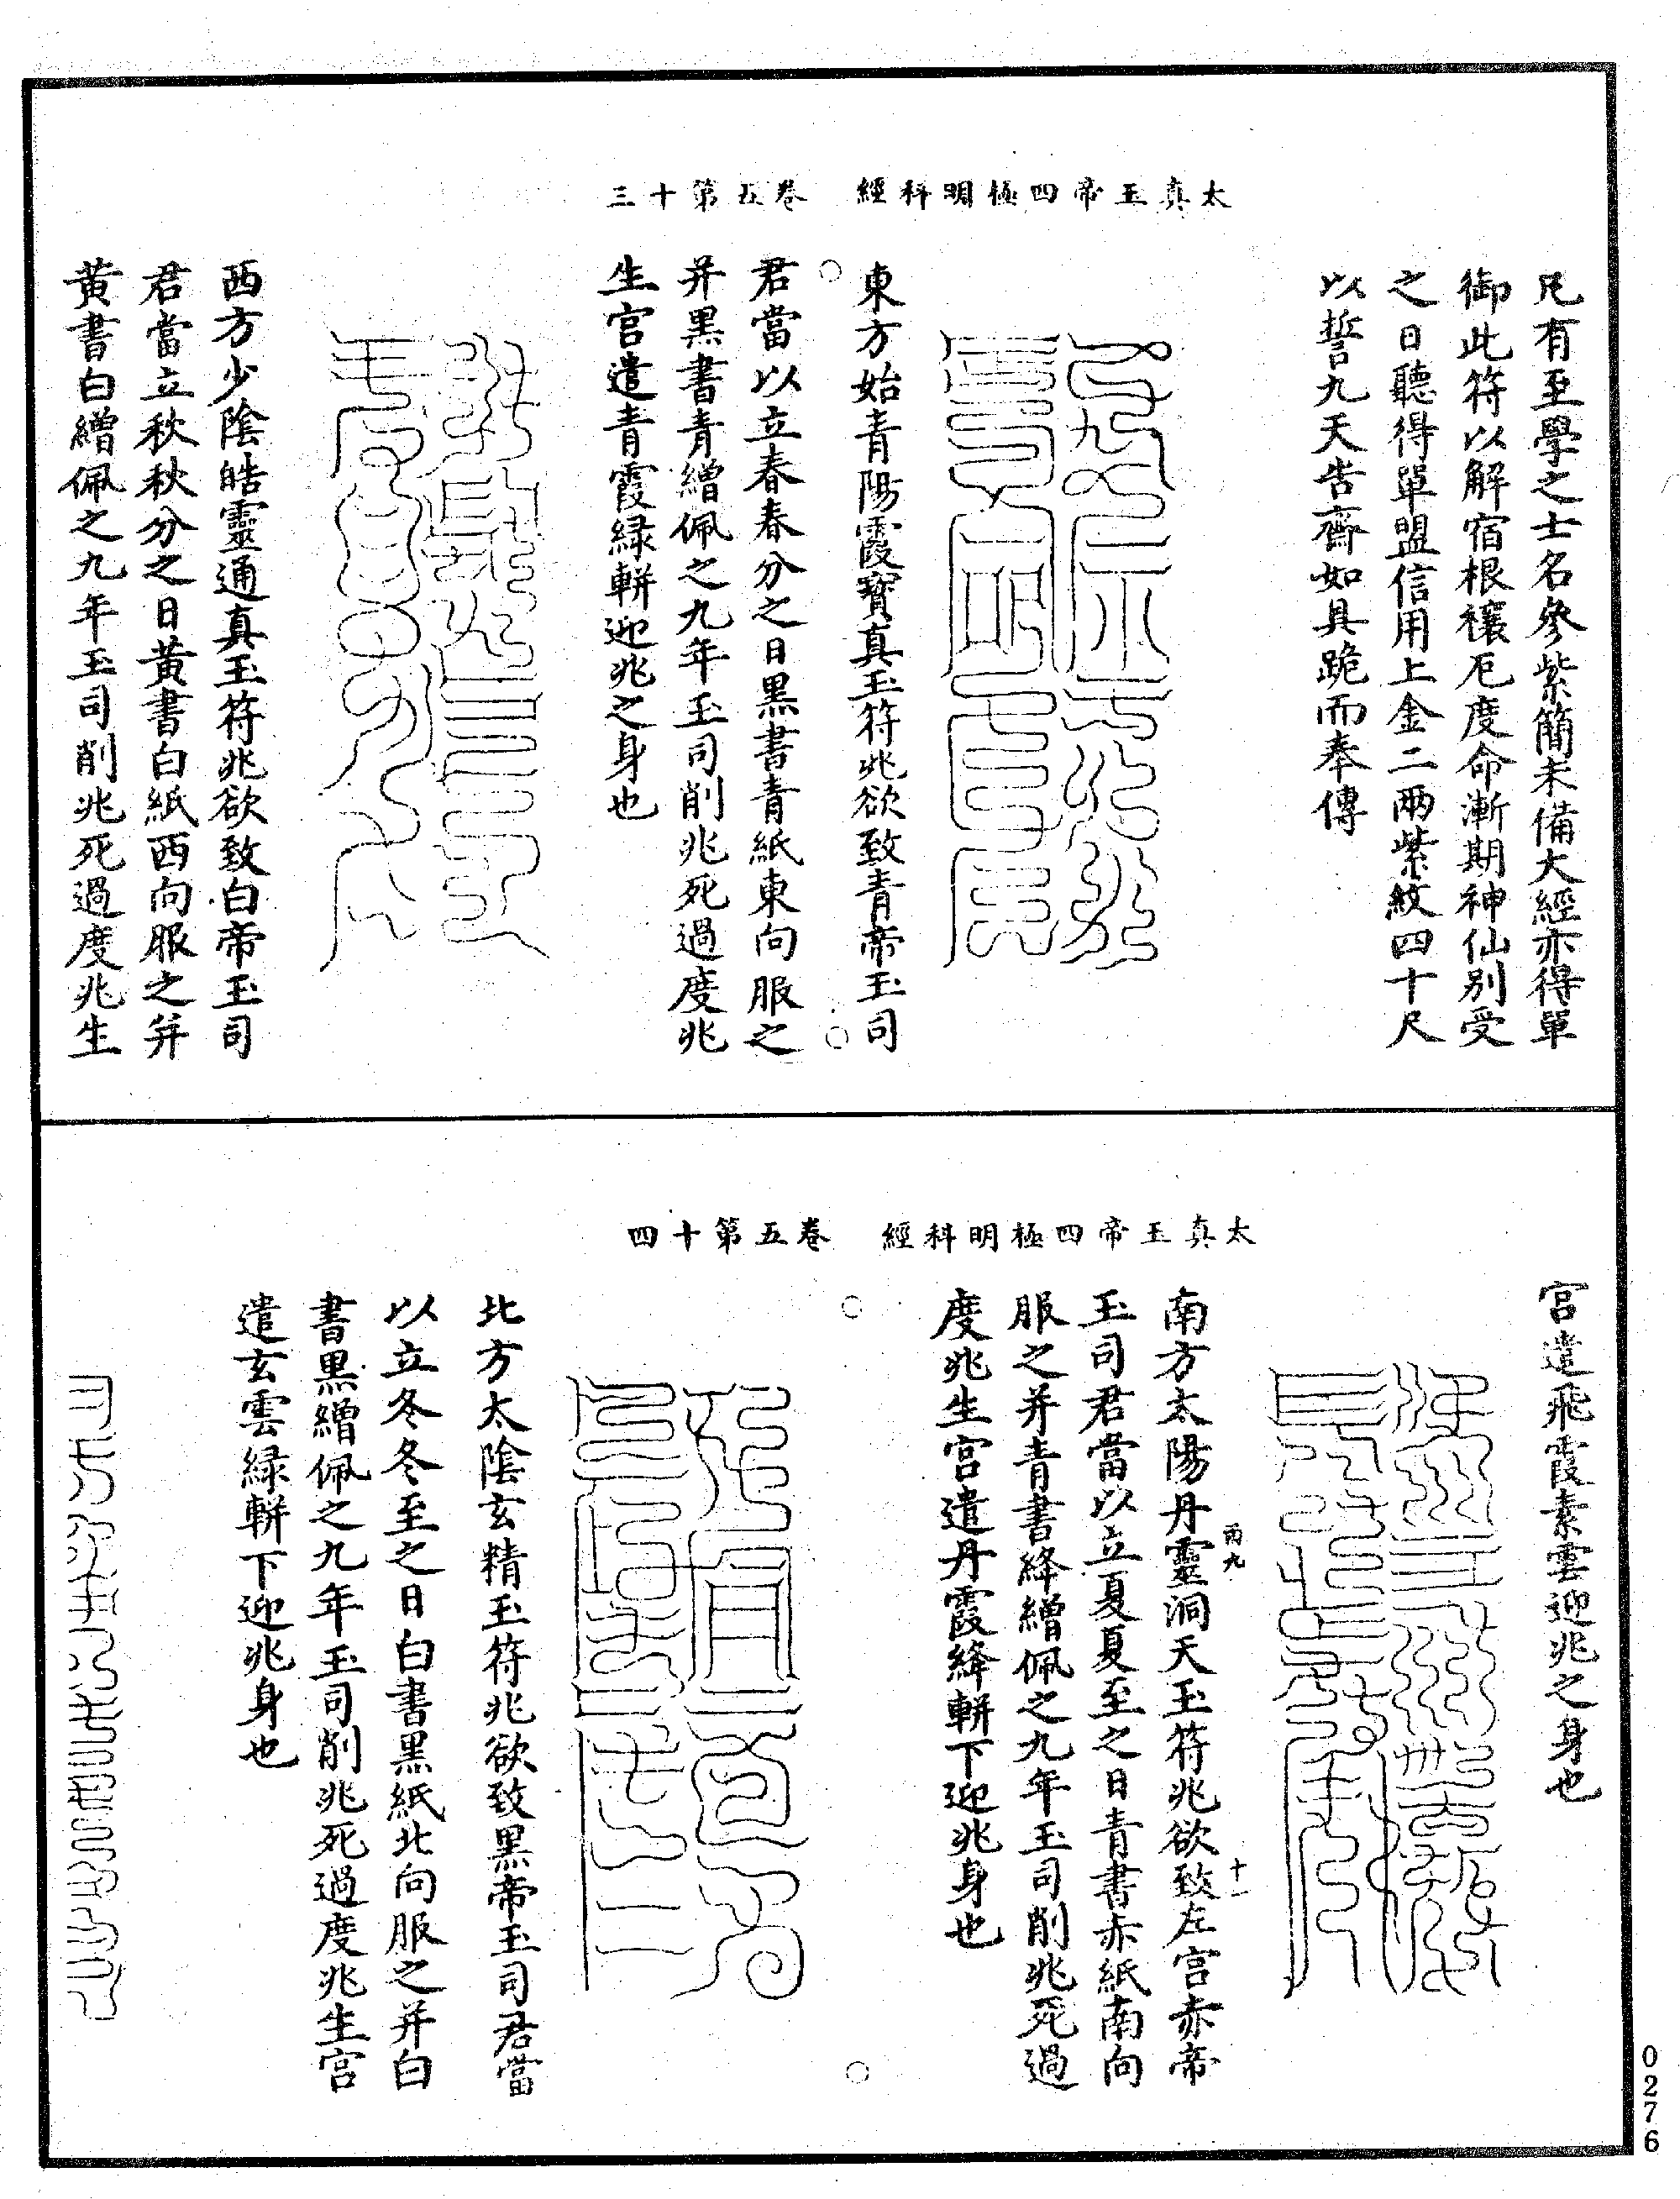 太真玉帝四極明科經　卷五第十三
凡有至學之士名參紫簡未備大經亦得單
御此符以解宿根禳厄度命漸期神仙別受
之日聽得單盟信用上金二兩紫紋四十尺
以誓九天告齋如具跪而奉傳
東方始青陽霞寶真玉符兆欲致青帝玉司
君當以立春春分之日黑書青紙東向服之
并黑書青繒佩之九年玉司削兆死過度兆
生宮遣青霞緑軿迎兆之身也
西方少陰皓靈通真玉符兆欲致白帝玉司
君當立秋秋分之日黃書白紙西向服之并
黃書白繒佩之九年玉司削兆死過度兆生
太真玉帝四極明科經　卷五第十四
宮遣飛霞素雲迎兆之身也
南方太陽丹靈洞天玉符兆欲致左宮赤帝
玉司君當以立夏夏至之日青書赤紙南向
服之并青書絳繒佩之九年玉司削兆死過
度兆生宮遣丹霞絳軿下迎兆身也
北方太陰玄精玉符兆欲致黑帝玉司君當
以立冬冬至之日白書黑紙北向服之并白
書黑繒佩之九年玉司削兆死過度兆生宮
遣玄雲緑軿下迎兆身也
十一
0276